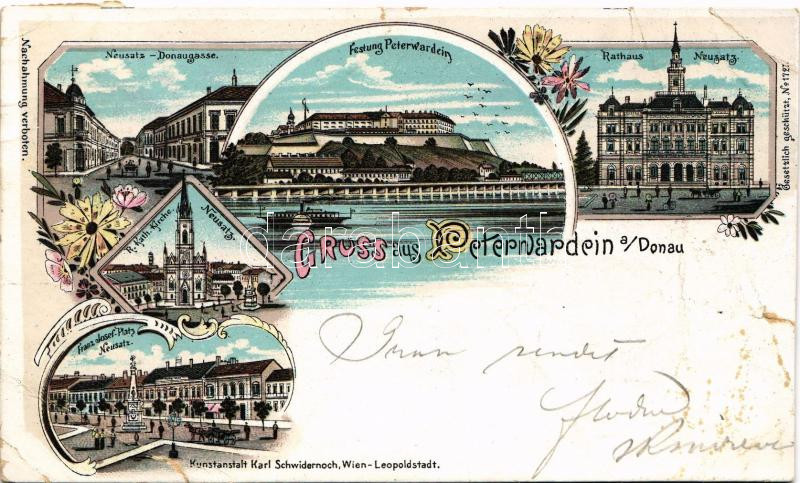 Neusatz – Donaugasse.
Festung Peterwardein
Rathaus Neusatz.
Nachahmung verboten.
Gesetzlich geschützt, No 1727.
R. Kath. Kirche. Neusatz.
Gruss aus Peterwardein a/Donau
Franz Josef-Platz
Neusatz.
sendet
Kunstanstalt Karl Schwidernoch, Wien – Leopoldstadt.
darabanth